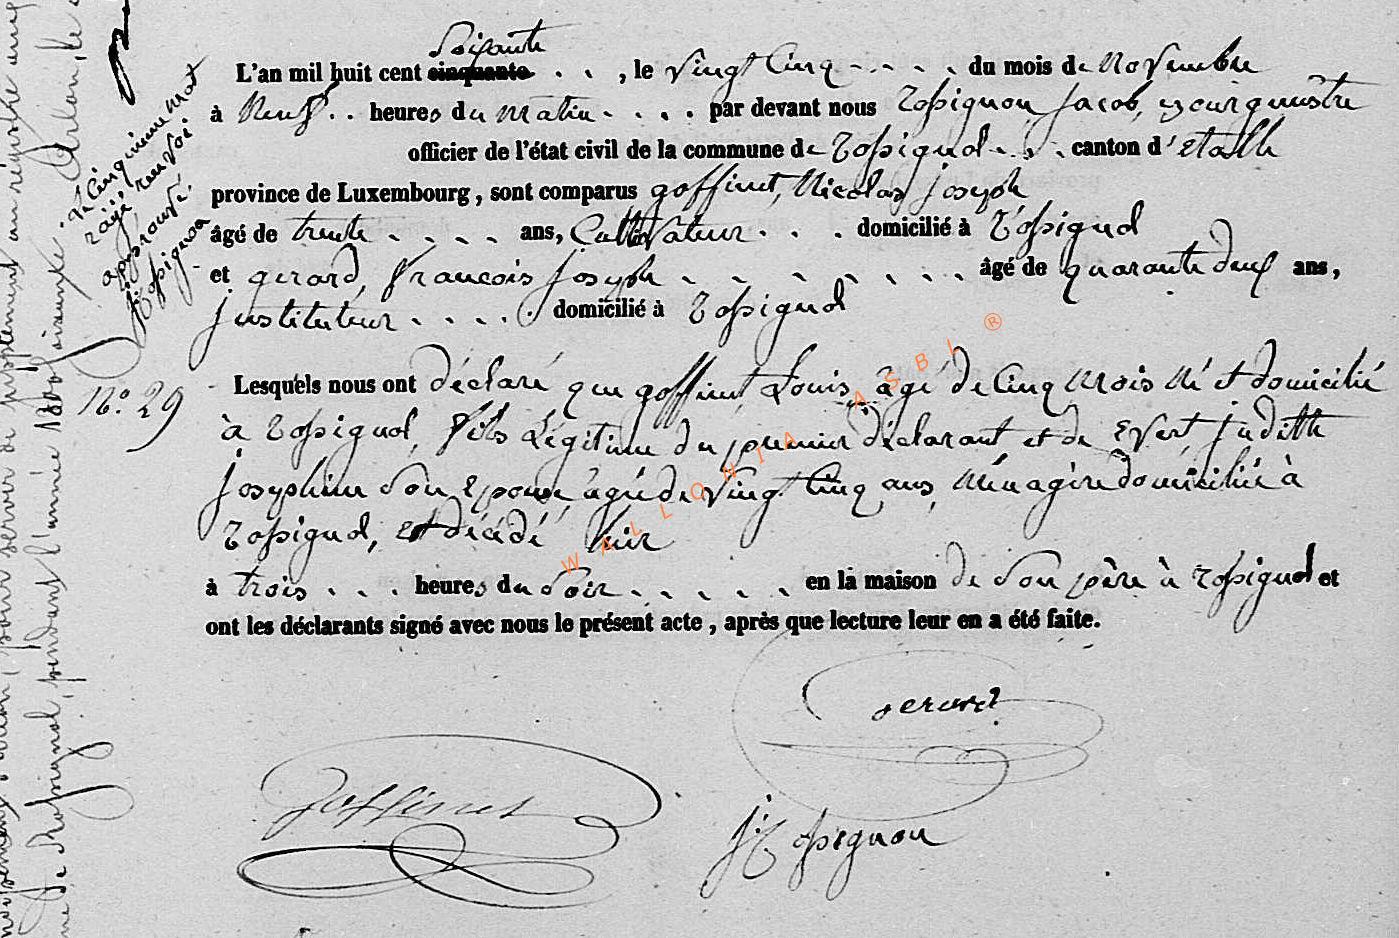 Soixante
L'an mil huit cent cinquante . . , le vingt cinq - - - . du mois de novembre
à Neuf . . heures du matin . . . . par devant nous Rossignon Jacob, Bourgmestre
officier de l'état civil de la commune de Rossignol . . . canton d'étalle
province de Luxembourg, sont comparus goffinet, Nicolas joseph
âgé de trente . . . . ans, Cultivateur . . . domicilié à Rossignol
et gérard, françois joseph . . . . . . . . âgé de quarante deux ans,
instituteur . . . . . domicilié à Rossignol
N.o 29
Lesquels nous ont déclaré que goffinet Louis, âgé de Cinq mois Né et domicilié
à Rossignol, fils Légitime du premier déclarant et de Evert Judith
Joséphine son Epouse, âgée de vingt Cinq ans, Ménagère domiciliée à
Rossignol, est décédé hier
à trois . . . heures du soir . . . . . en la maison de son père à Rossignol et
ont les déclarants signé avec nous le présent acte, après que lecture leur en a été faite.
gerard
goffinet
J Rossignon
le Cinquième mot
rayé renvoi
approuvé
J Rossignon
supplément au registre
pour servir de
Arlon, le
de Rossignol, pendant l'année
WALLONIA ASBL ®